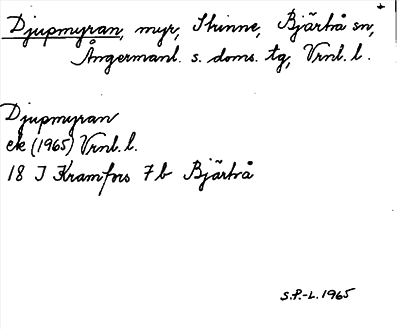 Djupmyran, myr, Skinne, Bjärtrå sn,
Ångermanl. s. doms. tg, Vrnl. l.
Djupmyran
ek (1965) Vrnl. l.
18 I Kramfors 7b Bjärtrå
S.P.-L. 1965